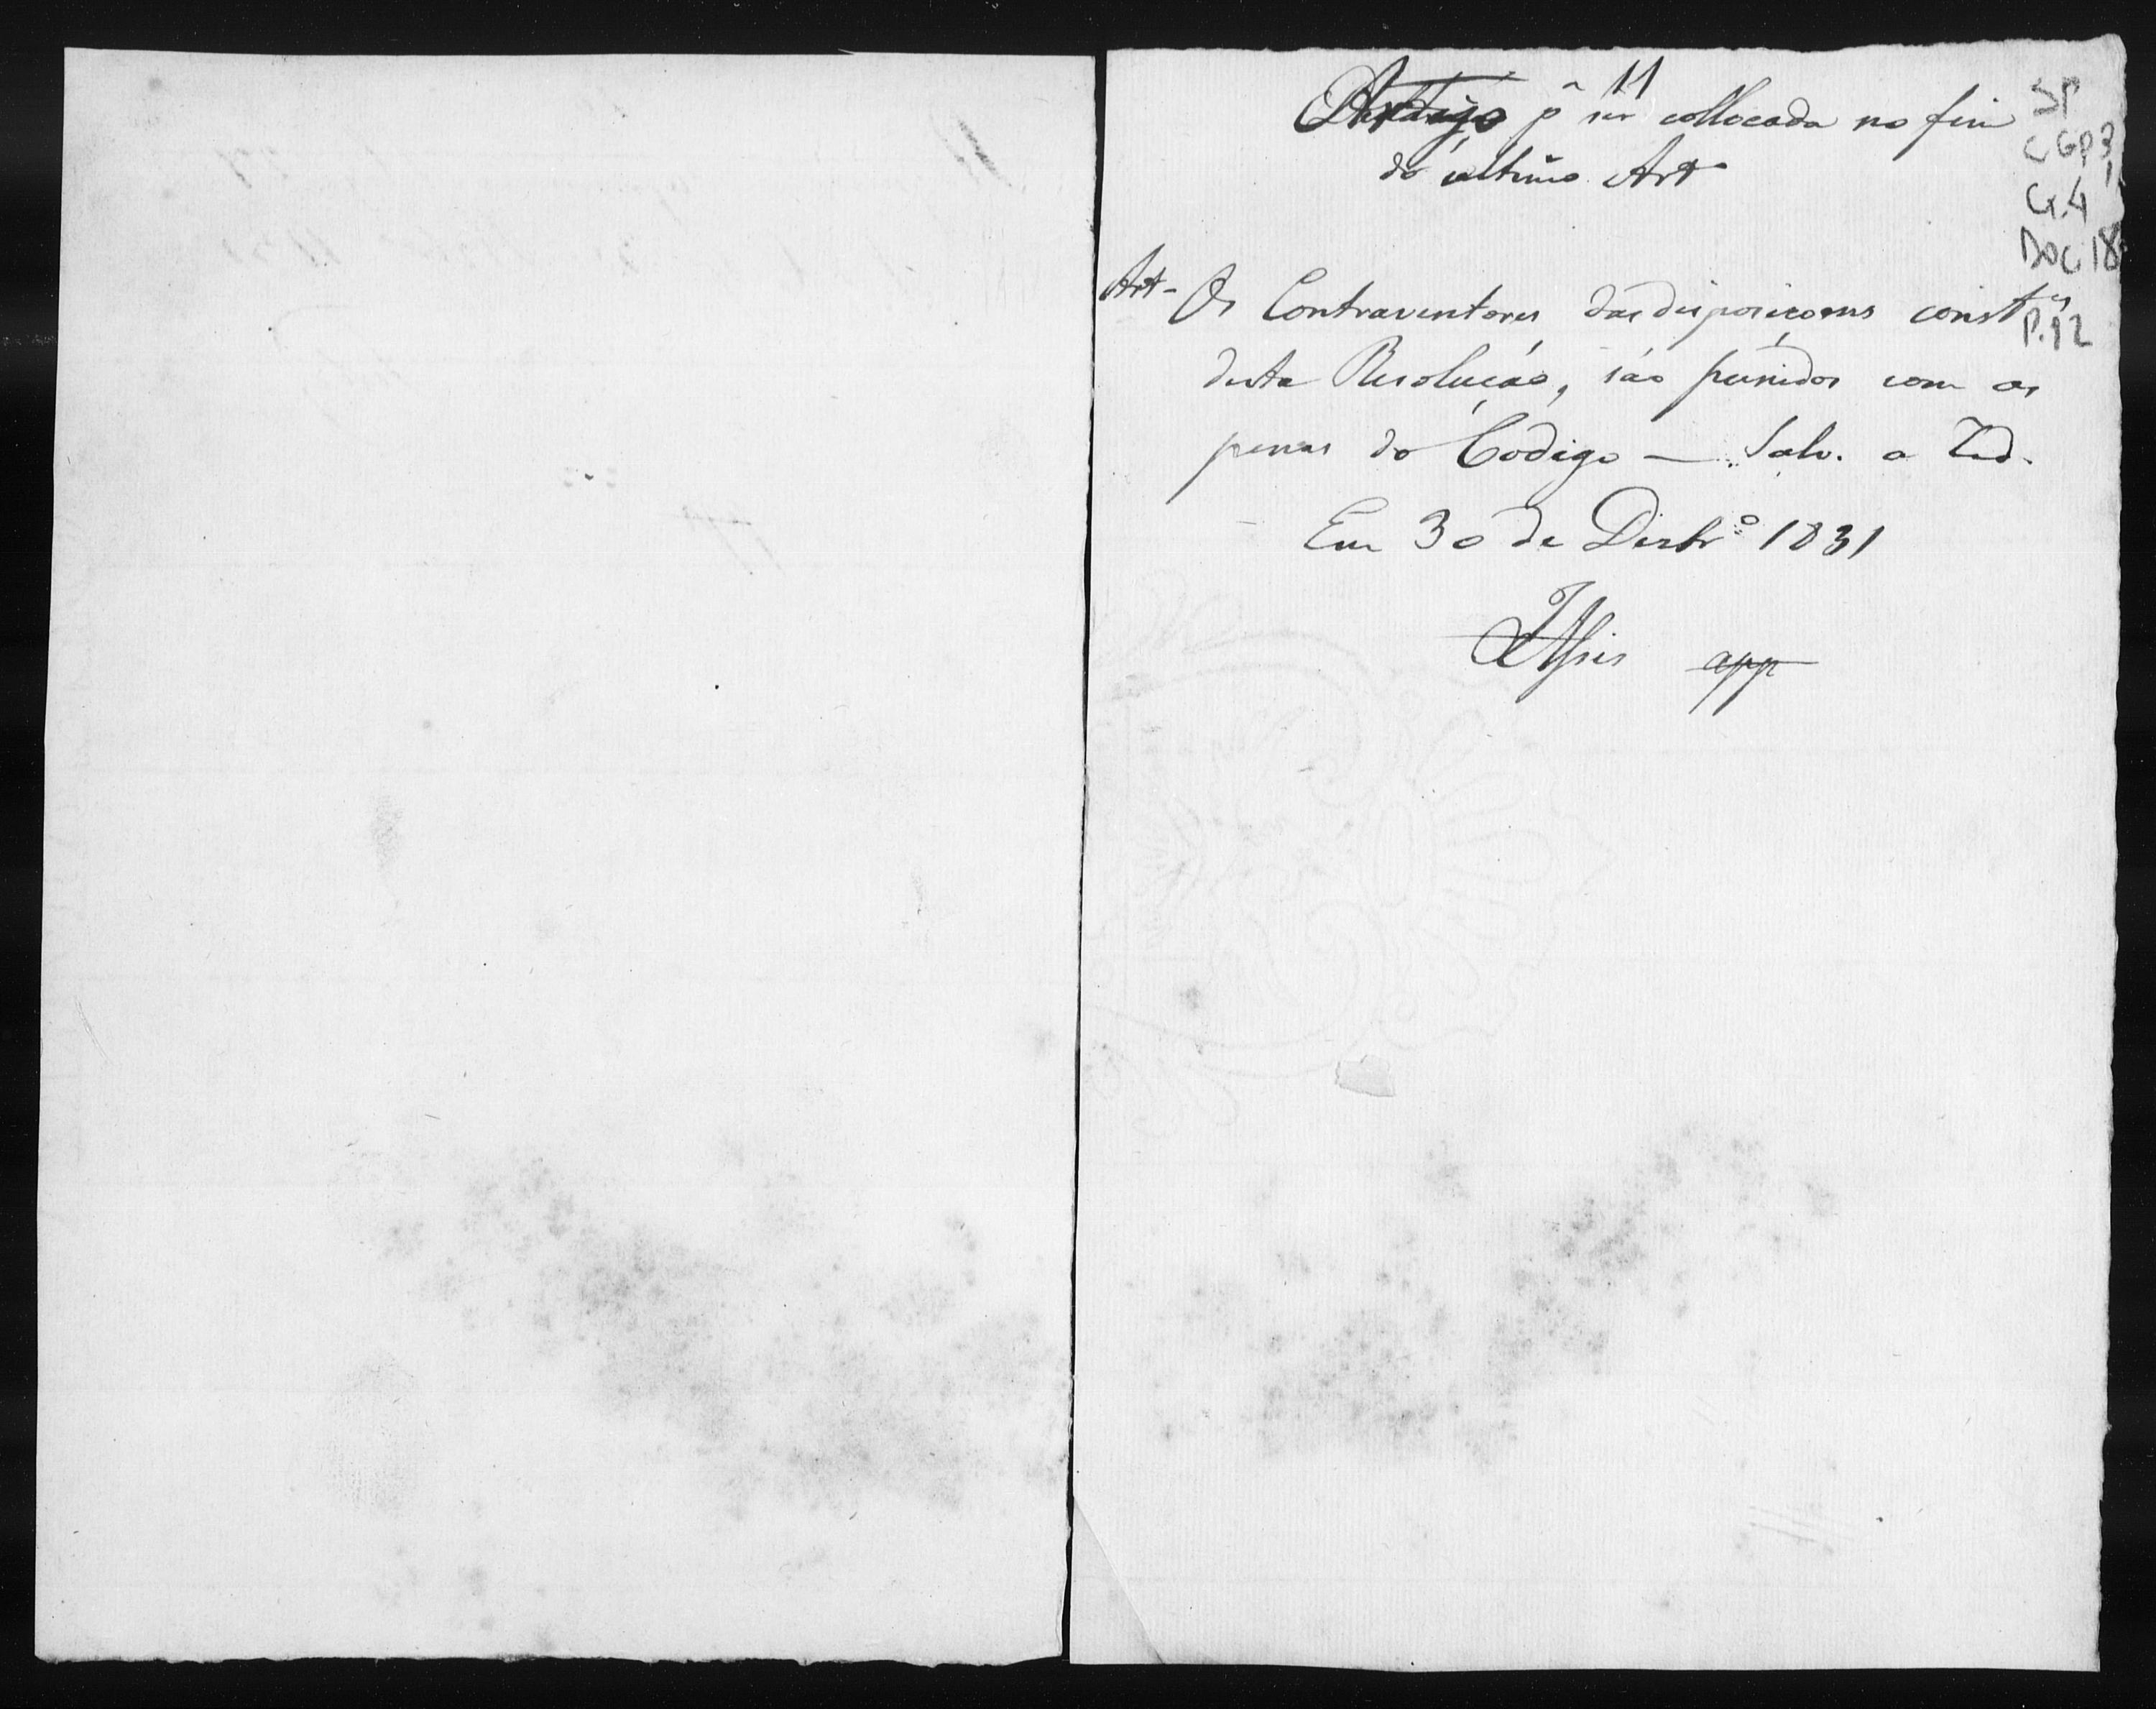 11
Artigo pª ser collocada no fim
do ultimo Art
Art - Os Contraventores das disposiçoens const.es
desta Resolução, são punidos com as
penas do Codigo — Salv. a Red.
Em 30 de Dezbrº 1831
app
SP
CGP3,
G.4
DOC.18
P.12